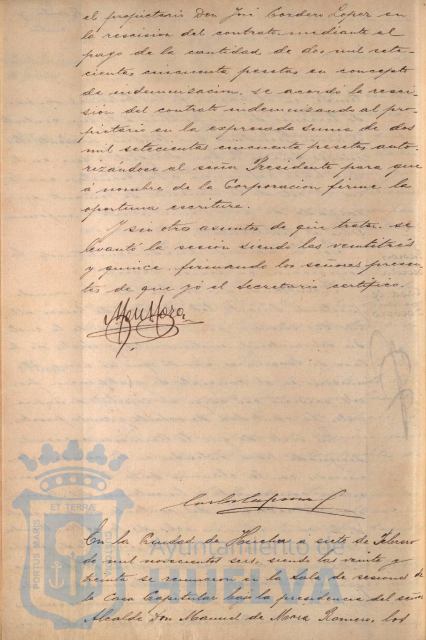 el propietario Don José Cordero Lopez en
la rescision del contrato mediante el
pago de la cantidad de dos mil sete-
cientas cincuenta pesetas en concepto
de indemnizacion, se acordó la resci-
sion del contrato indemnizando al pro-
pietario en la expresada suma de dos
mil setecientas cincuenta pesetas, auto-
rizándose al señor Presidente para que
á nombre de la Corporacion firme la
oportuna escritura.
Y sin otros asuntos de que tratar, se
levantó la sesion siendo las veintitres
y quince, firmando los señores presen-
tes de que yó el Secretario certifico.
En la Ciudad de Huelva á siete de Febrero
de mil novecientos seis, siendo las veinte y
treinta se reunieron en la Sala de sesiones de
la Casa Capitular bajo la presidencia del señor
Alcalde Don Manuel de Mora Romero, los
PORTUS MARIS
ET TERRÆ
Ayuntamiento de
HUELVA